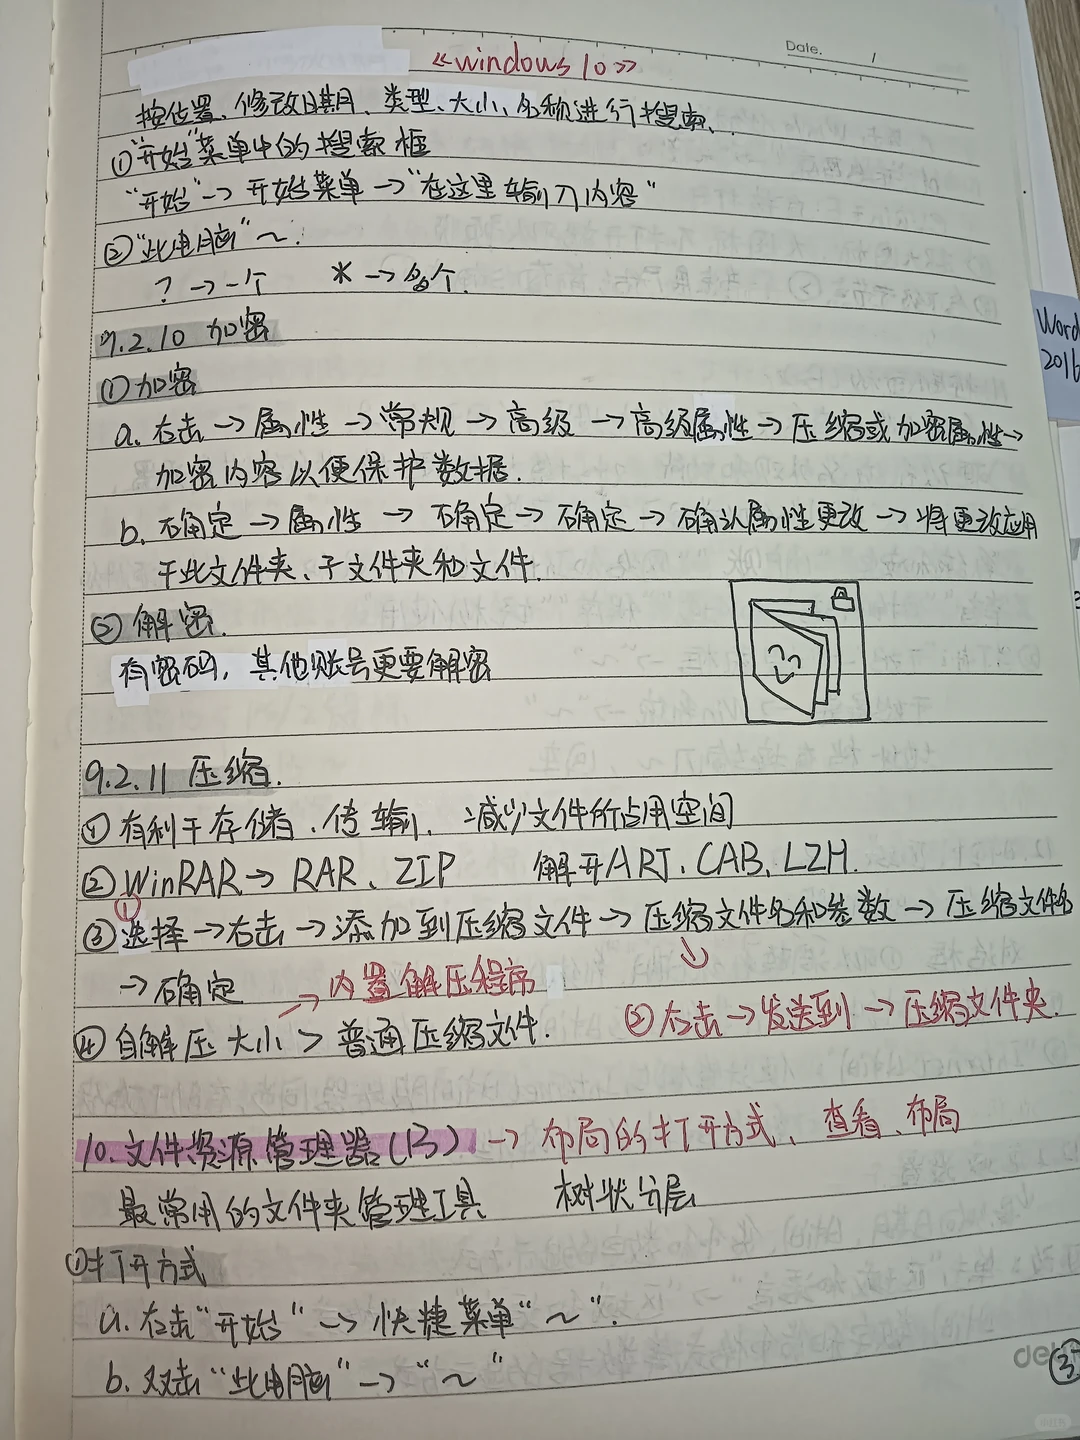 Date. /
《windows 10》
按位置、修改日期、类型、大小、名称进行搜索、
①"开始"菜单中的搜索框
"开始"→开始菜单→"在这里输入内容"
②"此电脑"~.
?→一个 *→多个.
9.2.10 加密
①加密
a. 右击→属性→常规→高级→高级属性→压缩或加密属性→
加密内容以便保护数据.
b. 确定→属性→确定→确定→确认属性更改→将更改应用
于此文件夹、子文件夹和文件.
②解密.
有密码,其他账号更要解密
9.2.11 压缩.
①有利于存储、传输、减少文件所占用空间
②WinRAR→RAR、ZIP 解开ARJ、CAB、LZH.
①
③选择→右击→添加到压缩文件→压缩文件名和参数→压缩文件名
→确定 →内置解压程序
②右击→发送到→压缩文件夹.
④自解压大小>普通压缩文件.
10.文件资源管理器(13) →布局的打开方式、查看、布局
最常用的文件夹管理工具 树状分层
①打开方式
a. 右击"开始"→快捷菜单"~".
b. 双击"此电脑"→"~"
deli
③
Word
2016
小红书